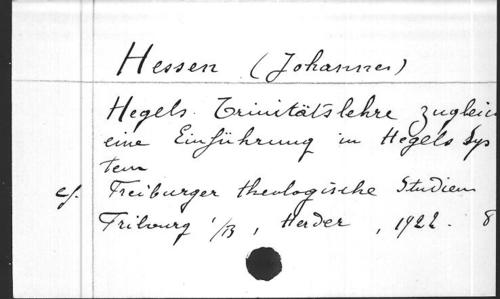 Hessen (Johannes)
Hegels Trinitätslehre zugleich
eine Einführung in Hegels Sys
tem
cf. Freiburger theologische Studien
Fribourg i/B, Herder, 1922. 8